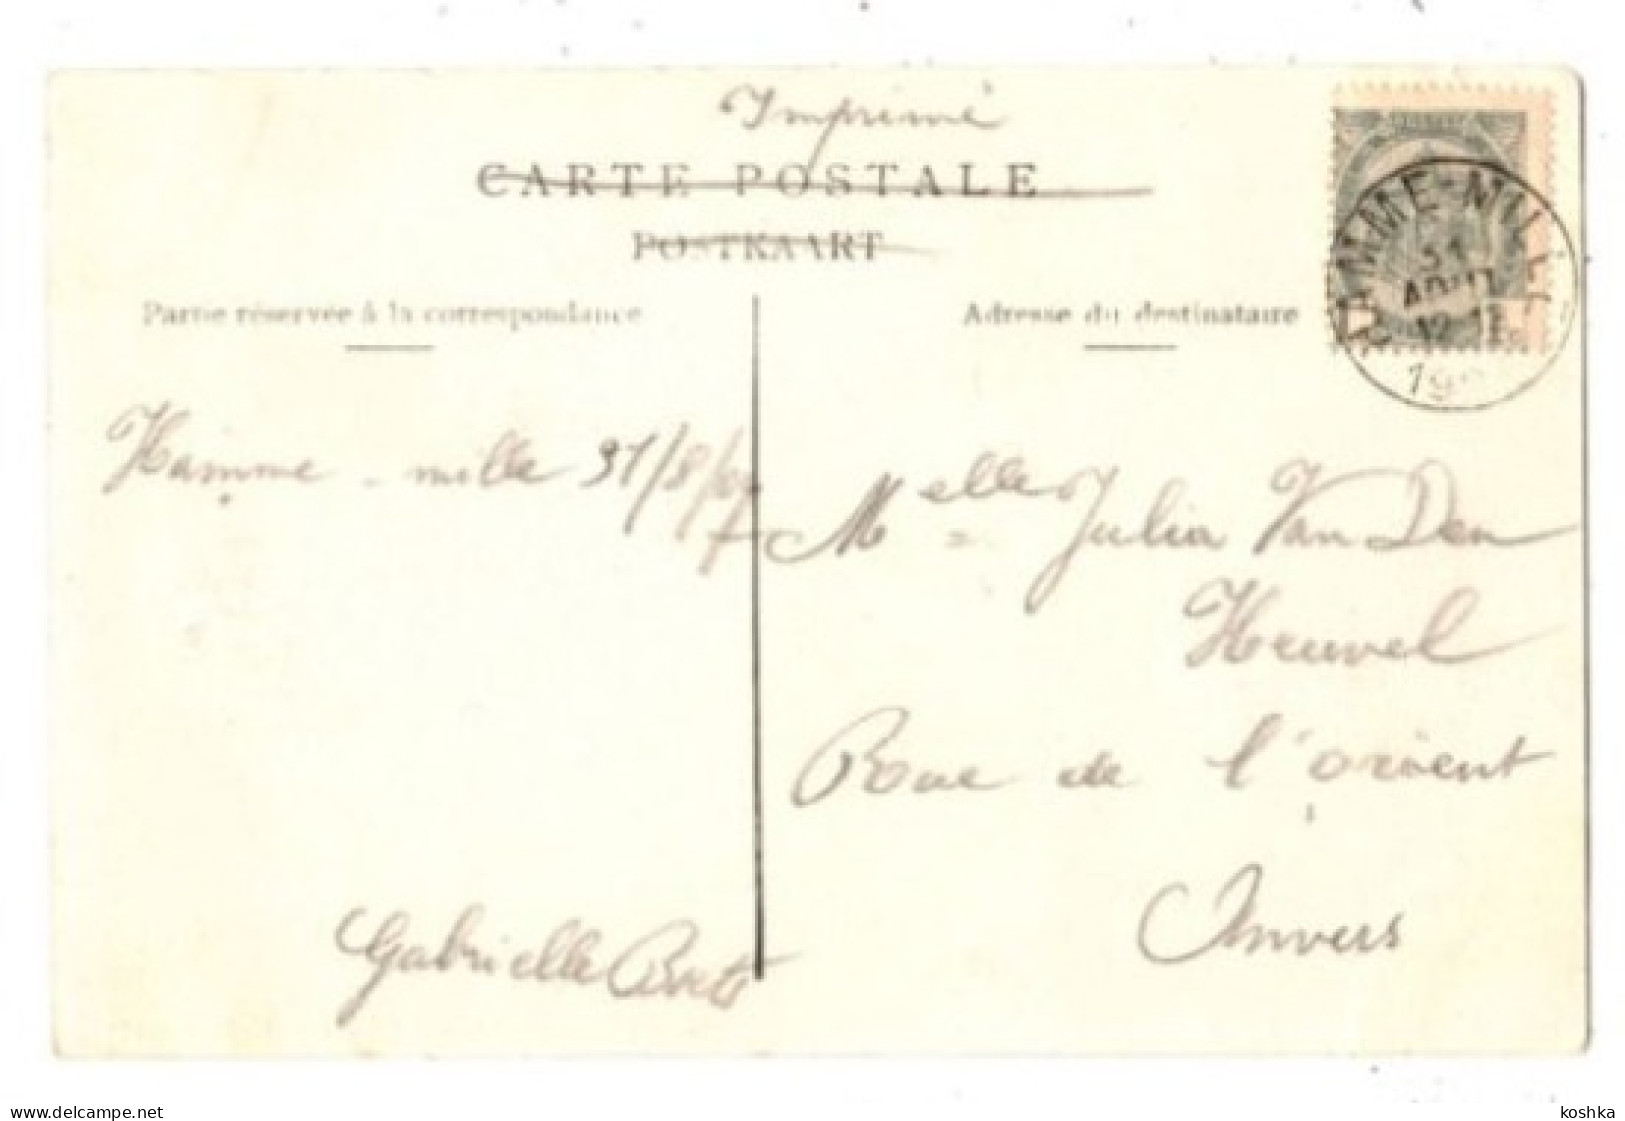 Imprimé
CARTE POSTALE
POSTKAART
Partie réservée à la correspondance
Adresse du destinataire
HAMME-MILLE
31
AOUT
12
190
Hamme-mille 31/8/07
Melle Julia Van Den
Heuvel
Rue de l'orient
Anvers
Gabrielle
www.delcampe.net
koshka